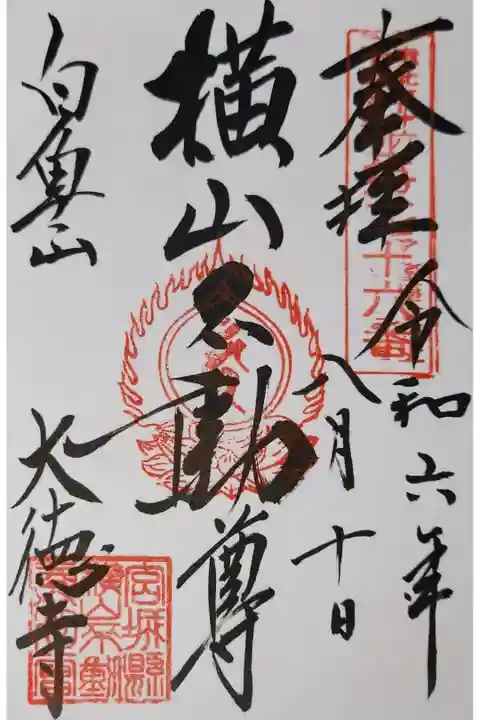 奉拝
令和六年
八月十日
横山不動尊
白魚山
大徳寺
宮城縣